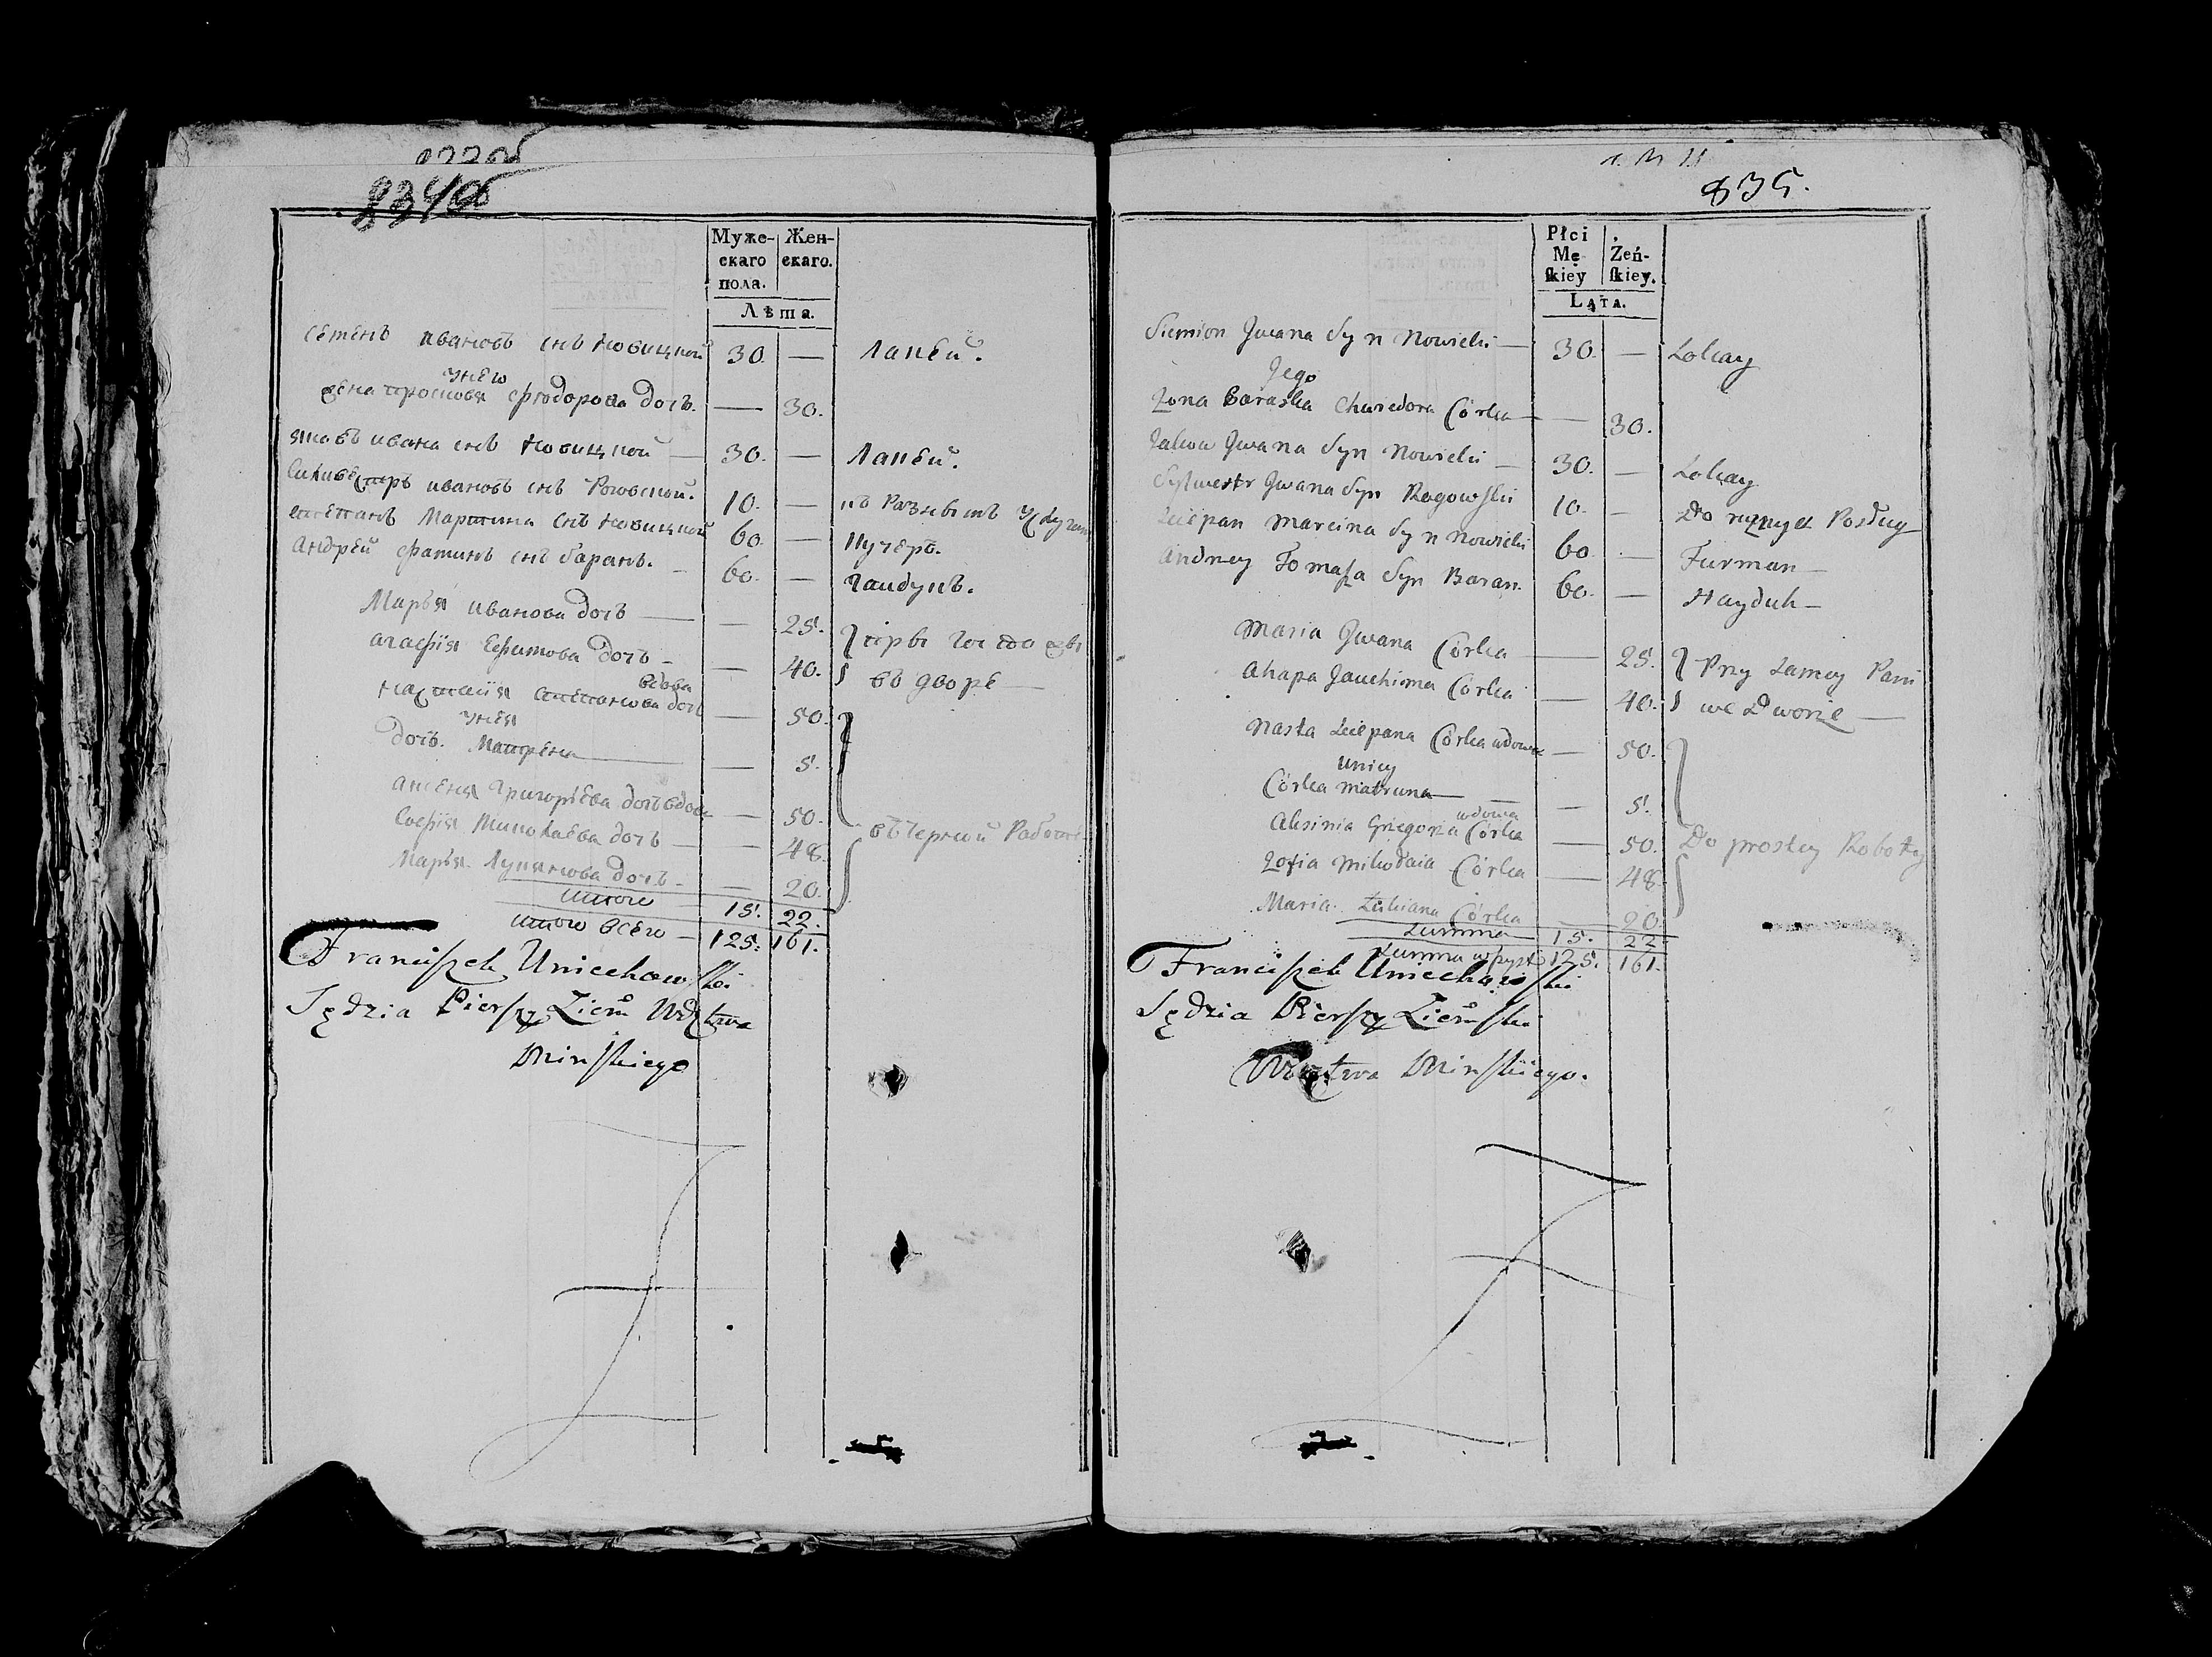 834об
Муже-
скаго
пола.
Жен-
скаго.
Лѣта.
Семенъ Ивановъ снъ Новицкой 30. — Лакей.
у него
жена Просковья Фіодорова дочь. — 30.
Яковъ Ивана снъ Новицкой — 30. — Лакей.
Силивестръ Ивановъ снъ Роговской. 10. — къ Разнымъ
Степанъ Мартина снъ Новицкой 60 — Кучеръ.
Андрей Фаминъ снъ Баранъ. — 60. — Гайдукъ.
Марья Иванова дочь — — 25.
Агафія Ефимова дочь — — 40. въ дворе —
вдова
Настасія Степанова дочь — 50.
у нея
дочь. Матрена — — 5.
Аксенья Григорьева дочь вдова — 50.
въ черной Работе
Софія Миколаева дочь — — 48.
Марья Лукянова дочь — — 20.
итого 15. 22.
итого всего — 125. 161.
Franciszek Uniechowski
Sędzia Pierszy Ziem Wdztwa
Minskiego
835.
Płci
Mę
skiey
Żeń-
skiey.
Lata.
Siemion Jwana Syn Nowicki — 30. — Lokay
Jego
Zona Paraska Chwedora Córka — — 30.
Jakow Jwana Syn Nowicki — 30. — Lokay
Sylwestr Jwana Syn Rogowski 10. — Do roznych Posług
Sciepan Marcina Syn Nowicki 60. — Furman —
Andrzey Tomasza Syn Baran. 60. — Hayduk —
Maria Jwana Córka — — 25. Przy Samey Pani
Ahapa Jauchima Córka — 40. we Dworze —
Nasta Sciepana Córka wdowa — 50.
Uniey
Córka Matruna — — 5.
wdowa
Aksinia Griegorza Córka — 50. Do prostey Roboty
Zofia Mikołaia Córka — 48.
Maria Łukiana Córka — 20.
Summa — 15. 22.
Summa wszyst 125. 161.
Franciszek Uniechowski
Sędzia Pierszy Ziemski
Wdztwa Minskiego.